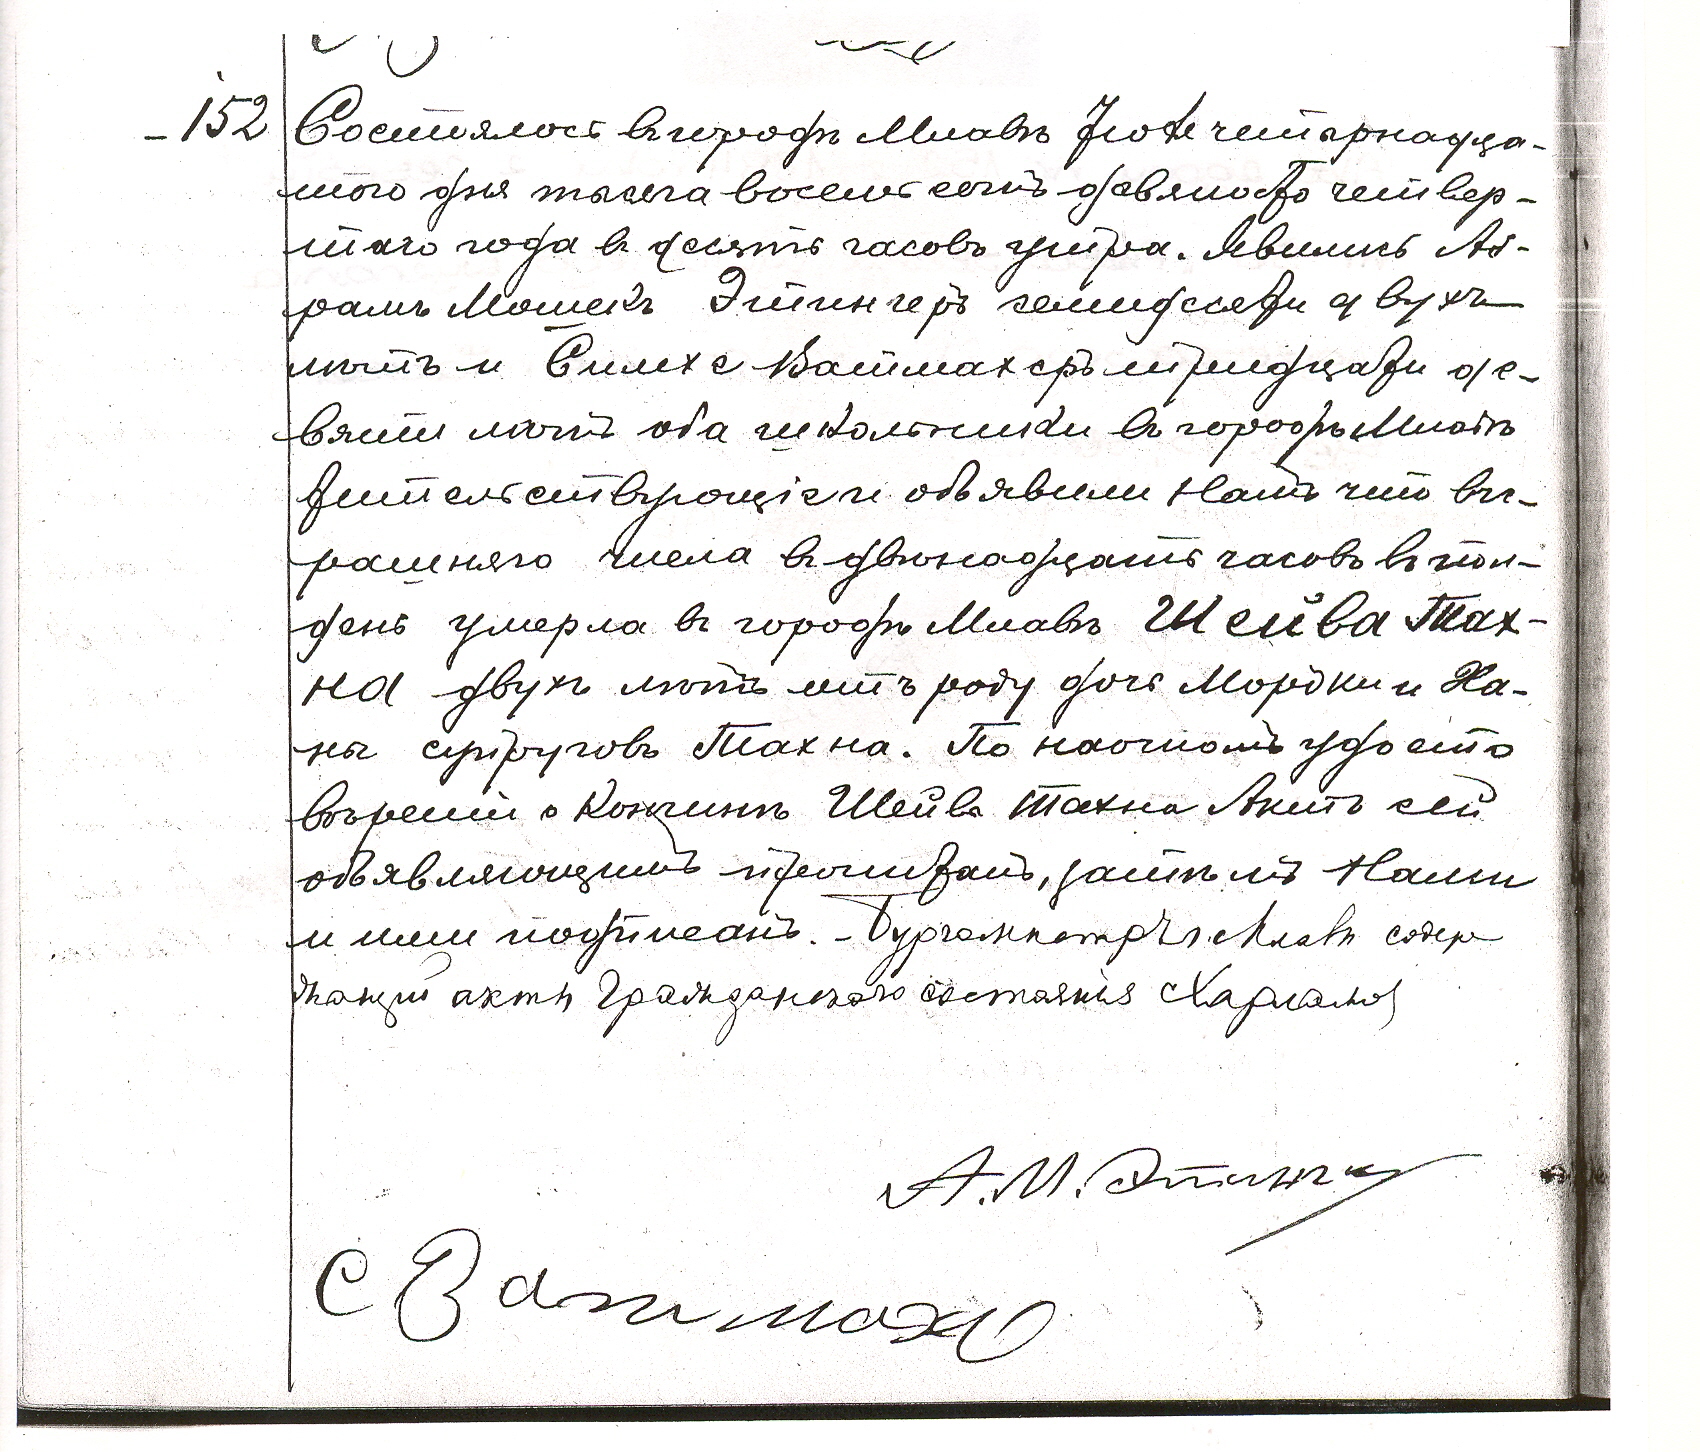 152 Состоялось въ городѣ Млавѣ Iюля четырнадца-
таго дня тысяча восемь сотъ девяносто четвер-
таго года в десять часовъ утра. Явились Аб-
рамъ Мошекъ Этингеръ семидесяти двухъ
лѣтъ и Симха Ватмахеръ тридцати де-
вяти лѣтъ оба школьники въ городѣ Млавѣ
жительствующiе и объявили Намъ что вче-
рашняго числа в двѣнадцать часовъ въ пол-
день умерла в городѣ Млавѣ Шейва Тах-
на двухъ лѣтъ отъ роду дочь Мордки и Ха-
ны супруговъ Тахна. По наочномъ удосто
вѣренiи о кончинѣ Шейвы Тахна Актъ сей
объявляющимъ прочитанъ, затѣмъ Нами
и ими подписанъ. - Бургомистръ г. Млавы содер
жащий акты гражданскаго состоянiя
А. М. Этингер
С Ватмахер